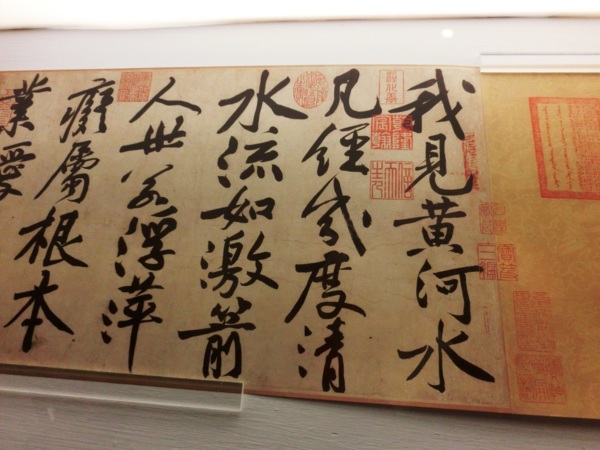 我見黃河水
凡經幾度清
水流如激箭
人世若浮萍
癡屬根本
業愛